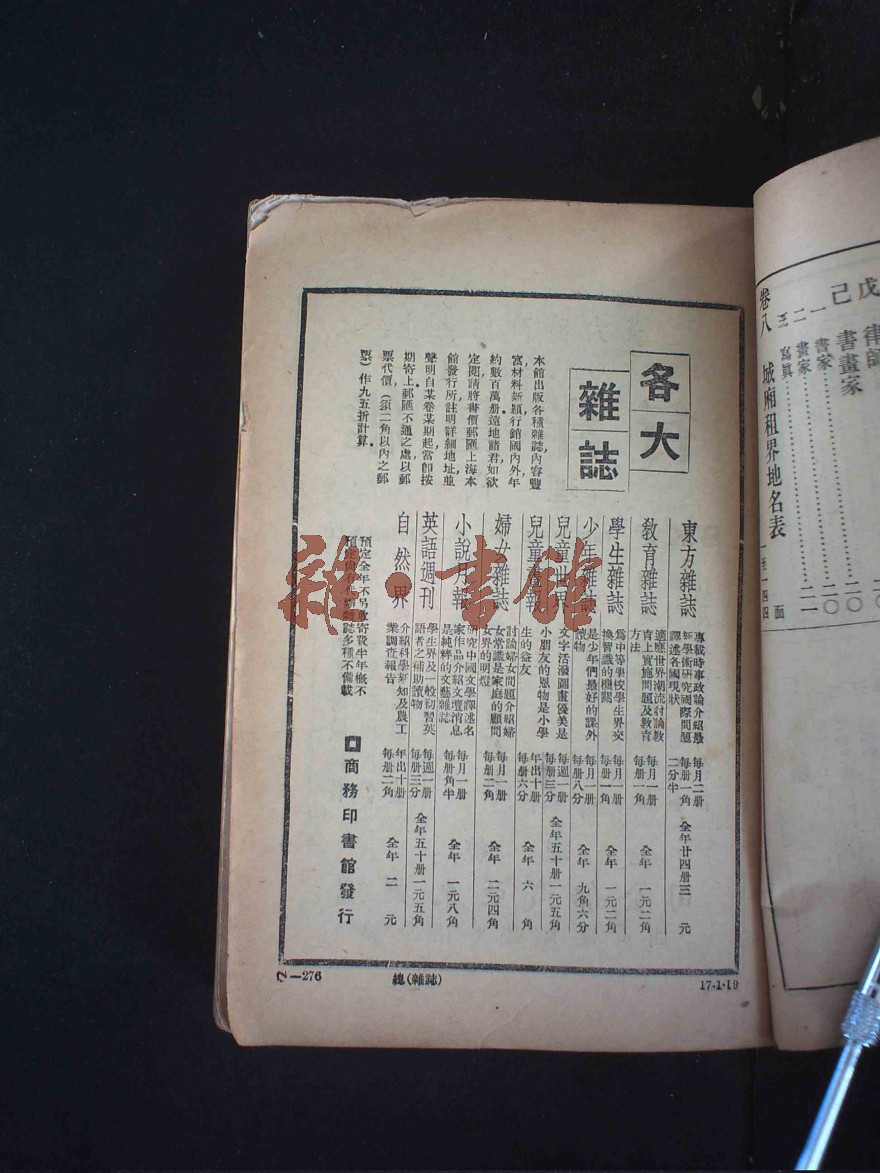 各大
雜誌
本館出版各種雜誌，內容豐
富，材料新穎，行銷國內外，年
約數百萬册。遠地諸君如欲
定閱，請將書價郵匯上海本
館發行所，註明詳細地址，並
聲明自某卷某期起，當卽按
期寄上。郵匯不通之處，以郵
票代價（須二角以內之郵
票）作九五折計算。
東方雜誌
專載時事政論介紹最
新學術研究國際問題
譯述各國現狀
每月二册
每册一角
二分半
全年廿四册三元
敎育雜誌
適應世界潮流討論敎
育上實施問題及敎育
方法
每月一册
每册一角
全年一元二角
學生雜誌
爲中等學校學生界交
換智識的機關
每月一册
每册一角
全年一元二角
少年雜誌
是少年們最好的課外
讀物
每月一册
每册八分
全年九角六分
兒童世界
文字活潑圖畫優美是
小朋友的恩物
每週一册
每册三分
全年五十册一元五角
兒童畫報
是小學
生的益友
年出十册
每册六分
全年六角
婦女雜誌
討論婦女問題介紹婦
女常識是家庭的顧問
女界的明燈
每月一册
每册二角
全年二元四角
小說月報
研究中國文學譯述名
家作品介紹文壇消息
是純粹的文藝雜誌
每月一册
每册角半
全年一元八角
英語週刊
學生界及一般初習英
語者之補助讀物
每週一册
每册三分
全年五十册一元五角
自然界
介紹科學新知及農工
業調查報告
年出十册
每册二角
全年二元
預定全年不另收寄費半年槪不
預定尙有代辦雜誌多種不備載
商務印書館發行
—276
總(雜誌)
17-1-19
雜·書館
戊
律師
己
書畫家
一
書家
二〇
二
畫家
二〇
三
寫眞
二一
卷八
城廂租界地名表
一至一四四面